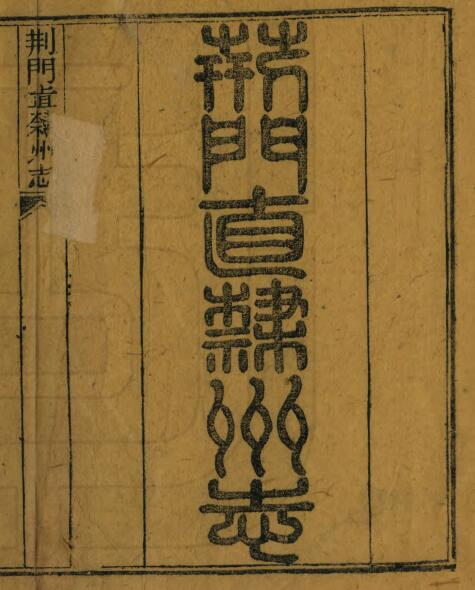 荆門直隸州志
荆門直隸州志